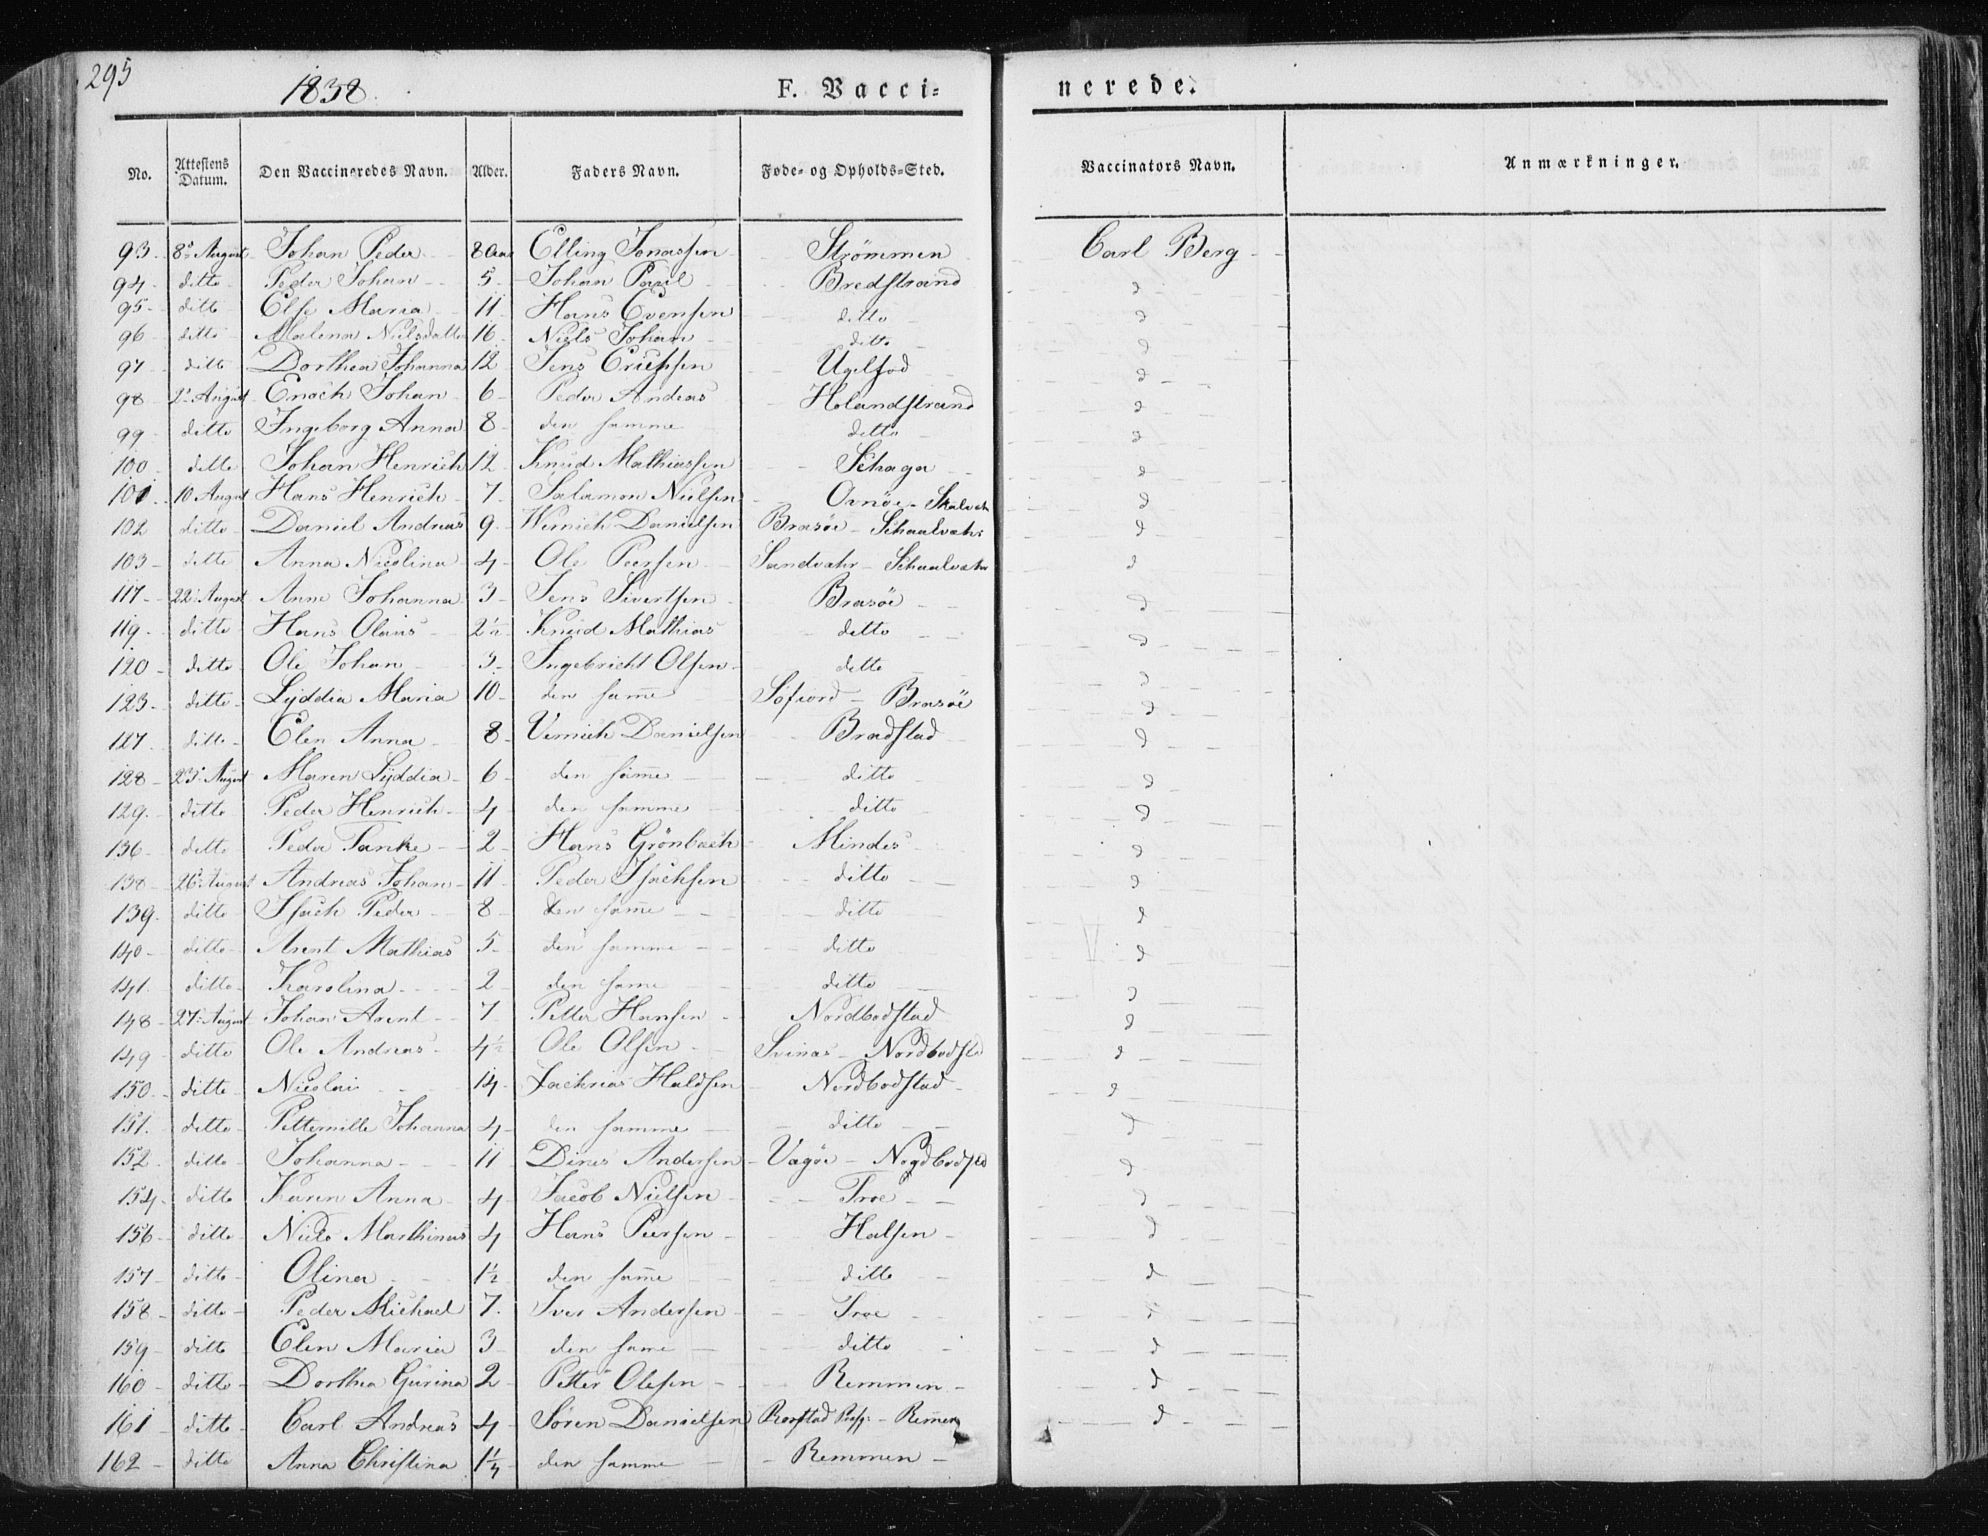 295
1838.
F. Vacci=
nerede.
No. Attestens Datum. Den Vaccineredes Navn. Alder. Faders Navn. Føde- og Opholds-Sted. Vaccinators Navn. Anmærkninger.
93. 8de August Johan Peder 8 Aar Elling Jonassen Strömmen Carl Berg
94. ditto Peder Johan 5 Johan Paul Bredstrand d
95. ditto Else Maria 11 Hans Evensen ditto d
96 ditto Malena Nielsdatte 16 Niels Johan ditto d
97 ditto Dorthea Johanna 12 Jens Erichsen Ugelfod d
98 2. August Enoch Johan 6 Peder Andreas Holandstrand d
99 ditto Ingeborg Anna 8 den samme ditto d
100 ditto Johan Henrich 12 Knud Mathiassen Schaga d
101 10 August Hans Henrich 7 Salamon Nielsen Oxnöe - Skalvah d
102 ditto Daniel Andreas 9 Wernich Danielsen Brasöe - Schaalvahr d
103 ditto Anna Nicolina 4 Ole Peersen Sandvahr - Schaalvahr d
117 22. August Anne Johanna 3 Jens Sivertsen Brasöe d
119. ditto Hans Olaus 2½ Knud Mathias ditto d
120 ditto Ole Johan 3 Ingebricht Olsen ditto d
123 ditto Lyddia Maria 10 den same Sofiord - Brasöe d
127. ditto Elen Anna 8 Vernich Danielsen Bradstad d
128 23. August Maren Lyddia 6 den same ditto d
129. ditto Peder Henrich 4 den samme ditto d
136 ditto Peder Tanke 2 Hans Grönbech Mindes d
138 26. August Andreas Johan 11 Peder Isachsen ditto d
139. ditto Isach Peder 8 den same ditto d
140 ditto Arent Mathias 5 den samme ditto d
141. ditto Karolina 2 den same ditto d
148 27. August Johan Arent 7 Petter Hansen Nordbodstad d
149 ditto Ole Andreas 4½ Ole Olsen Svinas - Nordbodstd d
150 ditto Nicolai 14 Zachrias Haldsen Nordbodstad d
151. ditto Petternille Johanna 4 den samme ditto d
152. ditto Johanna 11 Dines Andersen Vagöe - Nordbodstd d
154 ditto Karen Anna 4 Jacob Nielsen Troe d
156 ditto Niels Marthinus 4 Hans Peersen Halsen d
157 ditto Olina 1½ den same ditto d
158 ditto Peder Michael 7. Iver Andersen Troe d
159 ditto Elen Maria 3 den same ditto d
160 ditto Dorthea Gurina 2 Petter Olesen Remmen d
161 ditto Carl Andreas 4 Sören Danielsen Rorstad Præsg. - Remen d
162 ditto Anna Christina 1¼ den samme Remmen